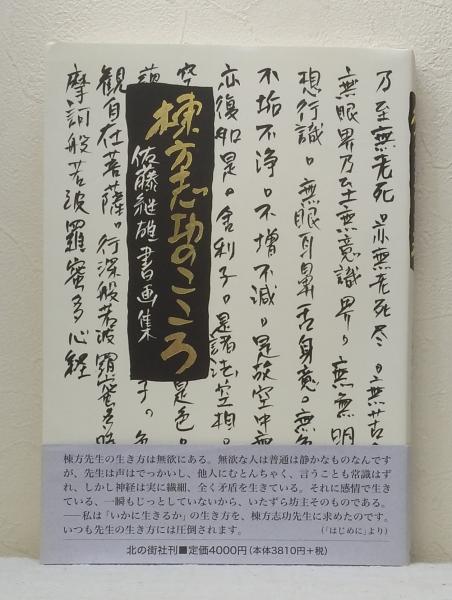 棟方志功のこころ
佐藤継雄書画集
摩訶般若波羅蜜多心経
観自在菩薩。行深般若波羅蜜多
空
是色。
子。
亦復如是。舎利子。是諸法空相。
不垢不浄。不増不減。是故空中無
想行識。無眼耳鼻舌身意。無色
無眼界乃至無意識界。無無明
乃至無老死亦無老死尽。無苦
棟方先生の生き方は無欲にある。無欲な人は普通は静かなものなんです
が、先生は声はでっかいし、他人にむとんちゃく、言うことも常識はず
れ、しかし神経は実に繊細、全く矛盾を生きている。それに感情で生き
ている、一瞬もじっとしていないから、いたずら坊主そのものである。
――私は「いかに生きるか」の生き方を、棟方志功先生に求めたのです。
いつも先生の生き方には圧倒されます。
(「はじめに」より)
北の街社刊■定価4000円(本体3810円+税)